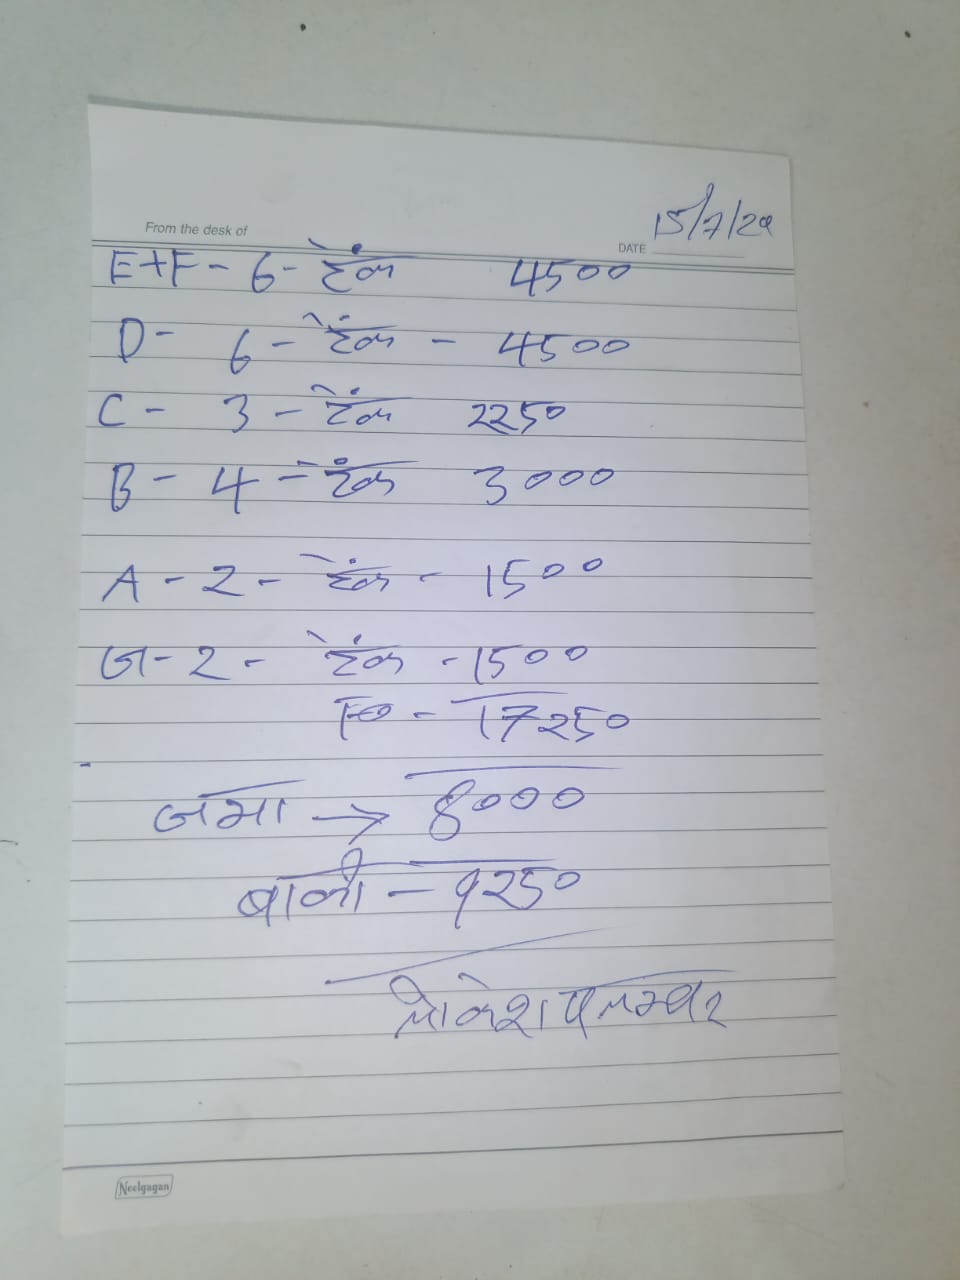 From the desk of
DATE 15/7/24
E+F - 6 - टैंक 4500
D - 6 - टैंक - 4500
C - 3 - टैंक 2250
B - 4 - टैंक 3000
A - 2 - टैंक - 1500
G - 2 - टैंक - 1500
17250
जमा → 8000
बाकी - 9250
लोकेश प्लम्बर
Neelgagan